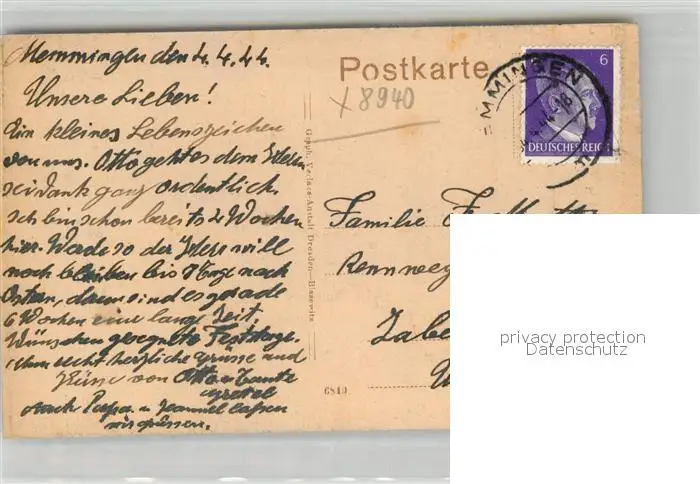 Memmingen den 4.4.44.
Unsere Lieben!
Ein kleines Lebenszeichen
von uns. Otto geht es dem Herrn
sei Dank ganz ordentlich.
Ich bin schon bereits 2 Wochen
hier. Werde so der Herr will
noch bleiben bis 8 Tage nach
Ostern, dann sind es gerade
6 Wochen eine lange Zeit.
Wünschen gesegnete Festtage.
Nun recht herzliche Grüsse und
Küsse von Otto u. Tante
Gretel
Auch Papa u. lassen
grüssen.
Graph. Verlags-Anstalt Dresden-Blasewitz
Postkarte
x 8940
MEMMINGEN
4.4.44
6
DEUTSCHES REICH
Familie
Rennweg
Zabe
6819
privacy protection
Datenschutz